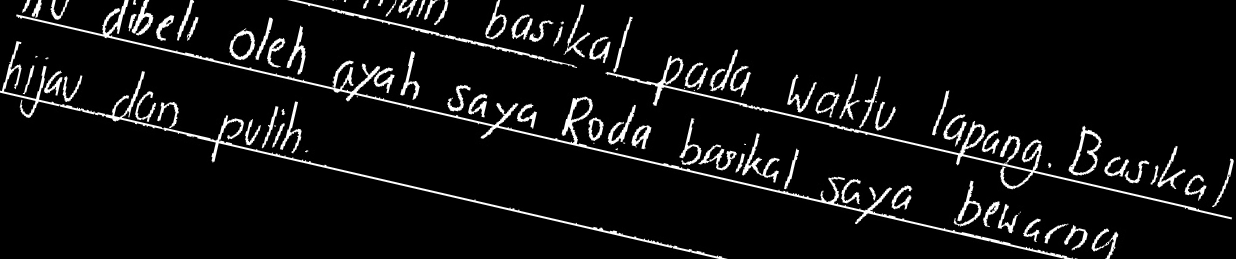 basikal pada waktu lapang. Basikal
dibeli oleh ayah saya Roda basikal saya bewarna
hijau dan putih.